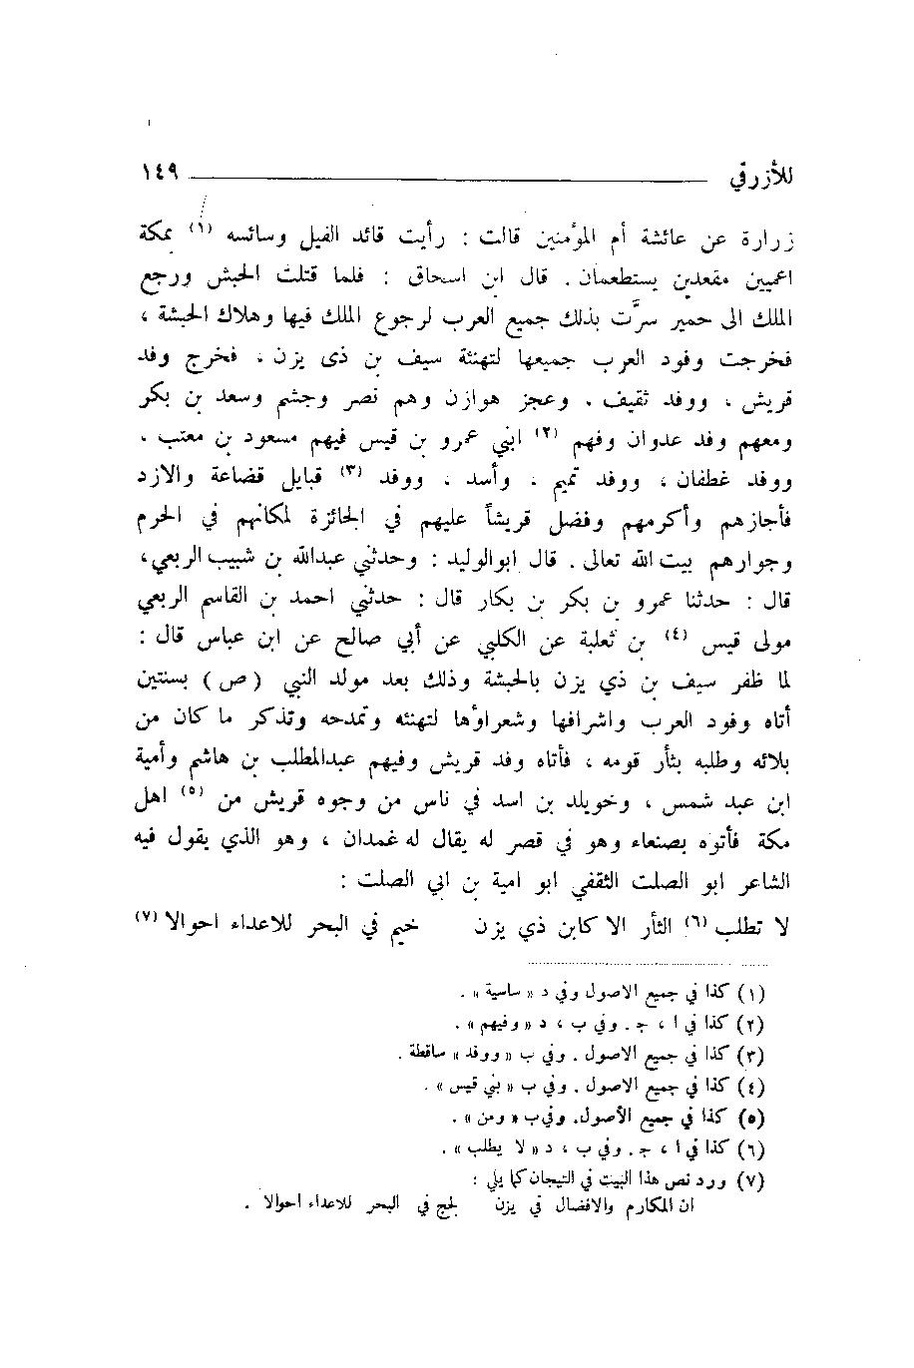 للأزرقي ١٤٩
زرارة عن عائشة أم المؤمنين قالت : رأيت قائد الفيل وسائسه (١) بمكة
اعميين مقعدين يستطعمان . قال ابن اسحاق : فلما قتلت الحبش ورجع
الملك الى حمير سرَّت بذلك جميع العرب لرجوع الملك فيها وهلاك الحبشة ،
فخرجت وفود العرب جميعها لتهنئة سيف بن ذى يزن ، فخرج وفد
قريش ، ووفد ثقيف . وعجز هوازن وهم نصر وجشم وسعد بن بكر
ومعهم وفد عدوان وفهم (٢) ابني عمرو بن قيس فيهم مسعود بن معتب .
ووفد غطفان ، ووفد تميم ، وأسد ، ووفد (٣) قبايل قضاعة والازد
فأجازهم وأكرمهم وفضل قريشاً عليهم في الجائزة لمكانهم في الحرم
وجوارهم بيت الله تعالى . قال ابوالوليد : وحدثني عبدالله بن شبيب الربعي،
قال : حدثنا عمرو بن بكر بن بكار قال : حدثني احمد بن القاسم الربعي
مولى قيس (٤) بن ثعلبة عن الكلبي عن أبي صالح عن ابن عباس قال :
لما ظفر سيف بن ذي يزن بالحبشة وذلك بعد مولد النبي ( ص ) بسنتين
أتاه وفود العرب واشرافها وشعراؤها لتهنئه وتمدحه وتذكر ما كان من
بلائه وطلبه بثأر قومه ، فأتاه وفد قريش وفيهم عبدالمطلب بن هاشم وأمية
ابن عبد شمس ، وخويلد بن اسد في ناس من وجوه قريش من (٥) اهل
مكة فأتوه بصنعاء وهو في قصر له يقال له غمدان ، وهو الذي يقول فيه
الشاعر ابو الصلت الثقفي ابو امية بن ابي الصلت :
لا تطلب (٦) الثأر الا كابن ذي يزن خيم في البحر للاعداء احوالا (٧)
(١) كذا في جميع الاصول وفي د « ساسية » .
(٢) كذا في ا ، ج . وفي ب ، د « وفيهم » .
(٣) كذا في جميع الاصول . وفي ب « ووفد » ساقطة .
(٤) كذا في جميع الاصول . وفي ب « بني قيس » .
(٥) كذا في جميع الأصول. وفي ب « ومن » .
(٦) كذا في ا ، ج . وفي ب ، د « لا يطلب » .
(٧) ورد نص هذا البيت في التيجان كما يلي :
ان المكارم والافضال في يزن لجج في البحر للاعداء احوالا .